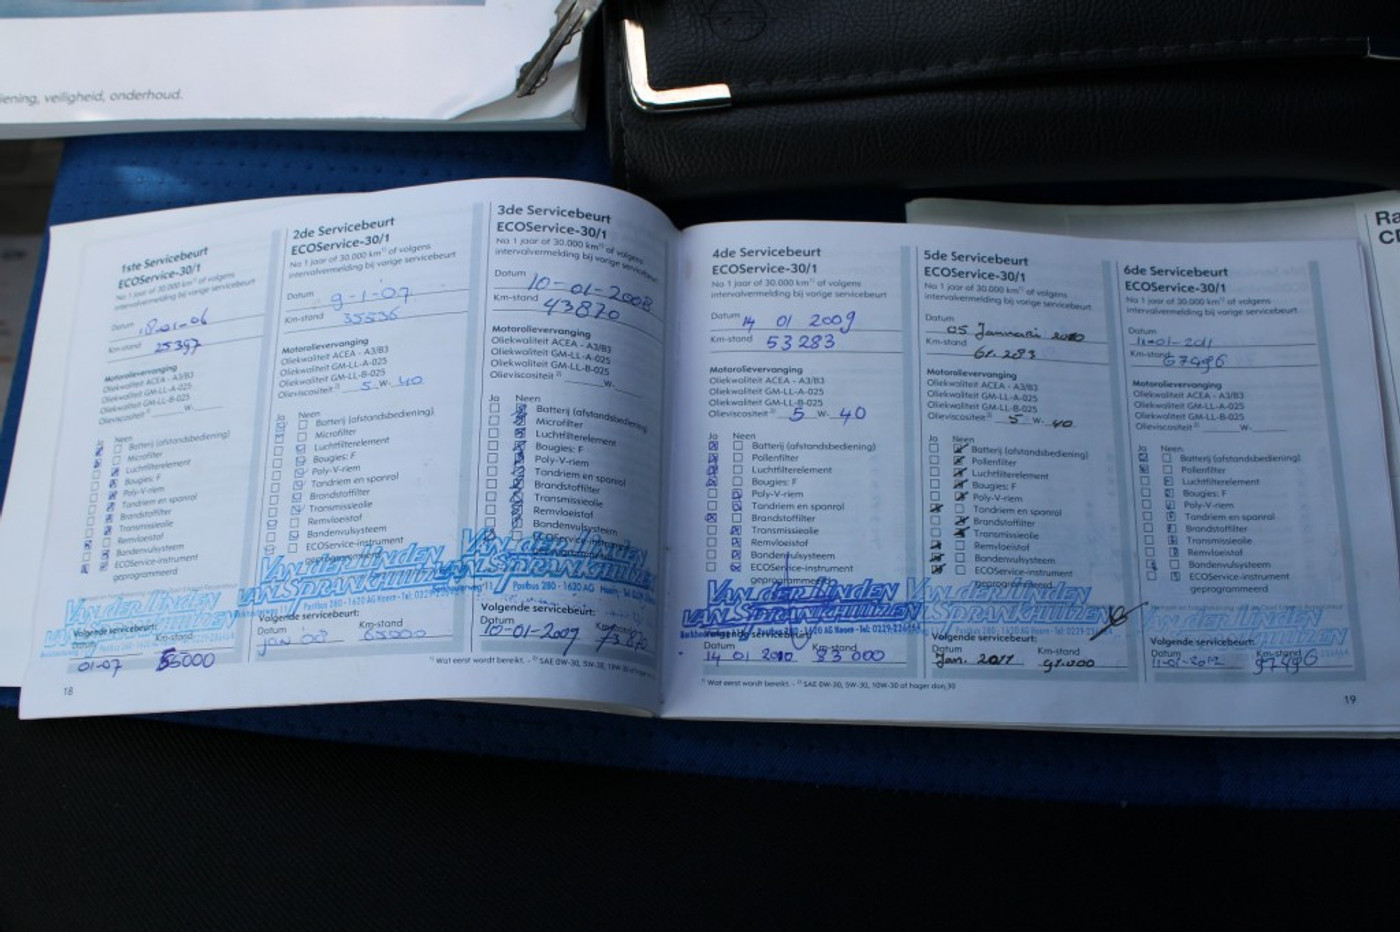 iening, veiligheid, onderhoud.
Ra
1ste Servicebeurt
ECOService-30/1
Na 1 jaar of 30.000 km¹⁾ of volgens
intervalvermelding bij vorige servicebeurt
Datum
Km-stand 25397
Motorolievervanging
Oliekwaliteit ACEA - A3/B3
Oliekwaliteit GM-LL-A-025
Oliekwaliteit GM-LL-B-025
Olieviscositeit²⁾ W-
Ja Neen
Batterij (afstandsbediening)
Microfilter
Luchtfilterelement
Bougies: F
Poly-V-riem
Tandriem en spanrol
Brandstoffilter
Transmissieolie
Remvloeistof
Bandenvulsysteem
ECOService-instrument
geprogrammeerd
VAN DER LINDEN
VAN SPRANKHUIZEN
Volgende servicebeurt:
Datum Km-stand
01-07 55000
18
2de Servicebeurt
ECOService-30/1
Na 1 jaar of 30.000 km¹⁾ of volgens
intervalvermelding bij vorige servicebeurt
Datum 9-1-07
Km-stand 35536
Motorolievervanging
Oliekwaliteit ACEA - A3/B3
Oliekwaliteit GM-LL-A-025
Oliekwaliteit GM-LL-B-025
Olieviscositeit²⁾ 5 W- 40
Ja Neen
Batterij (afstandsbediening)
Microfilter
Luchtfilterelement
Bougies: F
Poly-V-riem
Tandriem en spanrol
Brandstoffilter
Transmissieolie
Remvloeistof
Bandenvulsysteem
ECOService-instrument
geprogrammeerd
VAN DER LINDEN
VAN SPRANKHUIZEN
Postbus 280 - 1620 AG Hoorn - Tel: 0229-
Volgende servicebeurt:
Datum Km-stand
jan 08 65000
3de Servicebeurt
ECOService-30/1
Na 1 jaar of 30.000 km¹⁾ of volgens
intervalvermelding bij vorige servicebeurt
Datum 10-01-2008
Km-stand 43870
Motorolievervanging
Oliekwaliteit ACEA - A3/B3
Oliekwaliteit GM-LL-A-025
Oliekwaliteit GM-LL-B-025
Olieviscositeit²⁾ W-
Ja Neen
Batterij (afstandsbediening)
Microfilter
Luchtfilterelement
Bougies: F
Poly-V-riem
Tandriem en spanrol
Brandstoffilter
Transmissieolie
Remvloeistof
Bandenvulsysteem
ECOService-instrument
VAN DER LINDEN
VAN SPRANKHUIZEN
Postbus 280 - 1620 AG Hoorn - Tel: 0229
Volgende servicebeurt:
Datum Km-stand
10-01-2009 73870
¹⁾ Wat eerst wordt bereikt. - ²⁾ SAE 0W-30, 5W-30, 10W-30 of hager
4de Servicebeurt
ECOService-30/1
Na 1 jaar of 30.000 km¹⁾ of volgens
intervalvermelding bij vorige servicebeurt
Datum 14 01 2009
Km-stand 53283
Motorolievervanging
Oliekwaliteit ACEA - A3/B3
Oliekwaliteit GM-LL-A-025
Oliekwaliteit GM-LL-B-025
Olieviscositeit²⁾ 5 W- 40
Ja Neen
Batterij (afstandsbediening)
Pollenfilter
Luchtfilterelement
Bougies: F
Poly-V-riem
Tandriem en spanrol
Brandstoffilter
Transmissieolie
Remvloeistof
Bandenvulsysteem
ECOService-instrument
geprogrammeerd
VAN DER LINDEN
VAN SPRANKHUIZEN
Volgende servicebeurt:
Datum Km-stand
14 01 2010 83 000
¹⁾ Wat eerst wordt bereikt. - ²⁾ SAE 0W-30, 5W-30, 10W-30 of hager dan 30
5de Servicebeurt
ECOService-30/1
Na 1 jaar of 30.000 km¹⁾ of volgens
intervalvermelding bij vorige servicebeurt
Datum 05 Januari 2010
Km-stand 61.283
Motorolievervanging
Oliekwaliteit ACEA - A3/B3
Oliekwaliteit GM-LL-A-025
Oliekwaliteit GM-LL-B-025
Olieviscositeit²⁾ 5 W- 40
Ja Neen
Batterij (afstandsbediening)
Pollenfilter
Luchtfilterelement
Bougies: F
Poly-V-riem
Tandriem en spanrol
Brandstoffilter
Transmissieolie
Remvloeistof
Bandenvulsysteem
ECOService-instrument
geprogrammeerd
VAN DER LINDEN
VAN SPRANKHUIZEN
Volgende servicebeurt:
Datum Km-stand
Jan. 2011 91.000
6de Servicebeurt
ECOService-30/1
Na 1 jaar of 30.000 km¹⁾ of volgens
intervalvermelding bij vorige servicebeurt
Datum
11-01-2011
Km-stand 67496
Motorolievervanging
Oliekwaliteit ACEA - A3/B3
Oliekwaliteit GM-LL-A-025
Oliekwaliteit GM-LL-B-025
Olieviscositeit²⁾ W-
Ja Neen
Batterij (afstandsbediening)
Pollenfilter
Luchtfilterelement
Bougies: F
Poly-V-riem
Tandriem en spanrol
Brandstoffilter
Transmissieolie
Remvloeistof
Bandenvulsysteem
ECOService-instrument
geprogrammeerd
VAN DER LINDEN
VAN SPRANKHUIZEN
Volgende servicebeurt:
Datum Km-stand
11-01-2012 97496
19